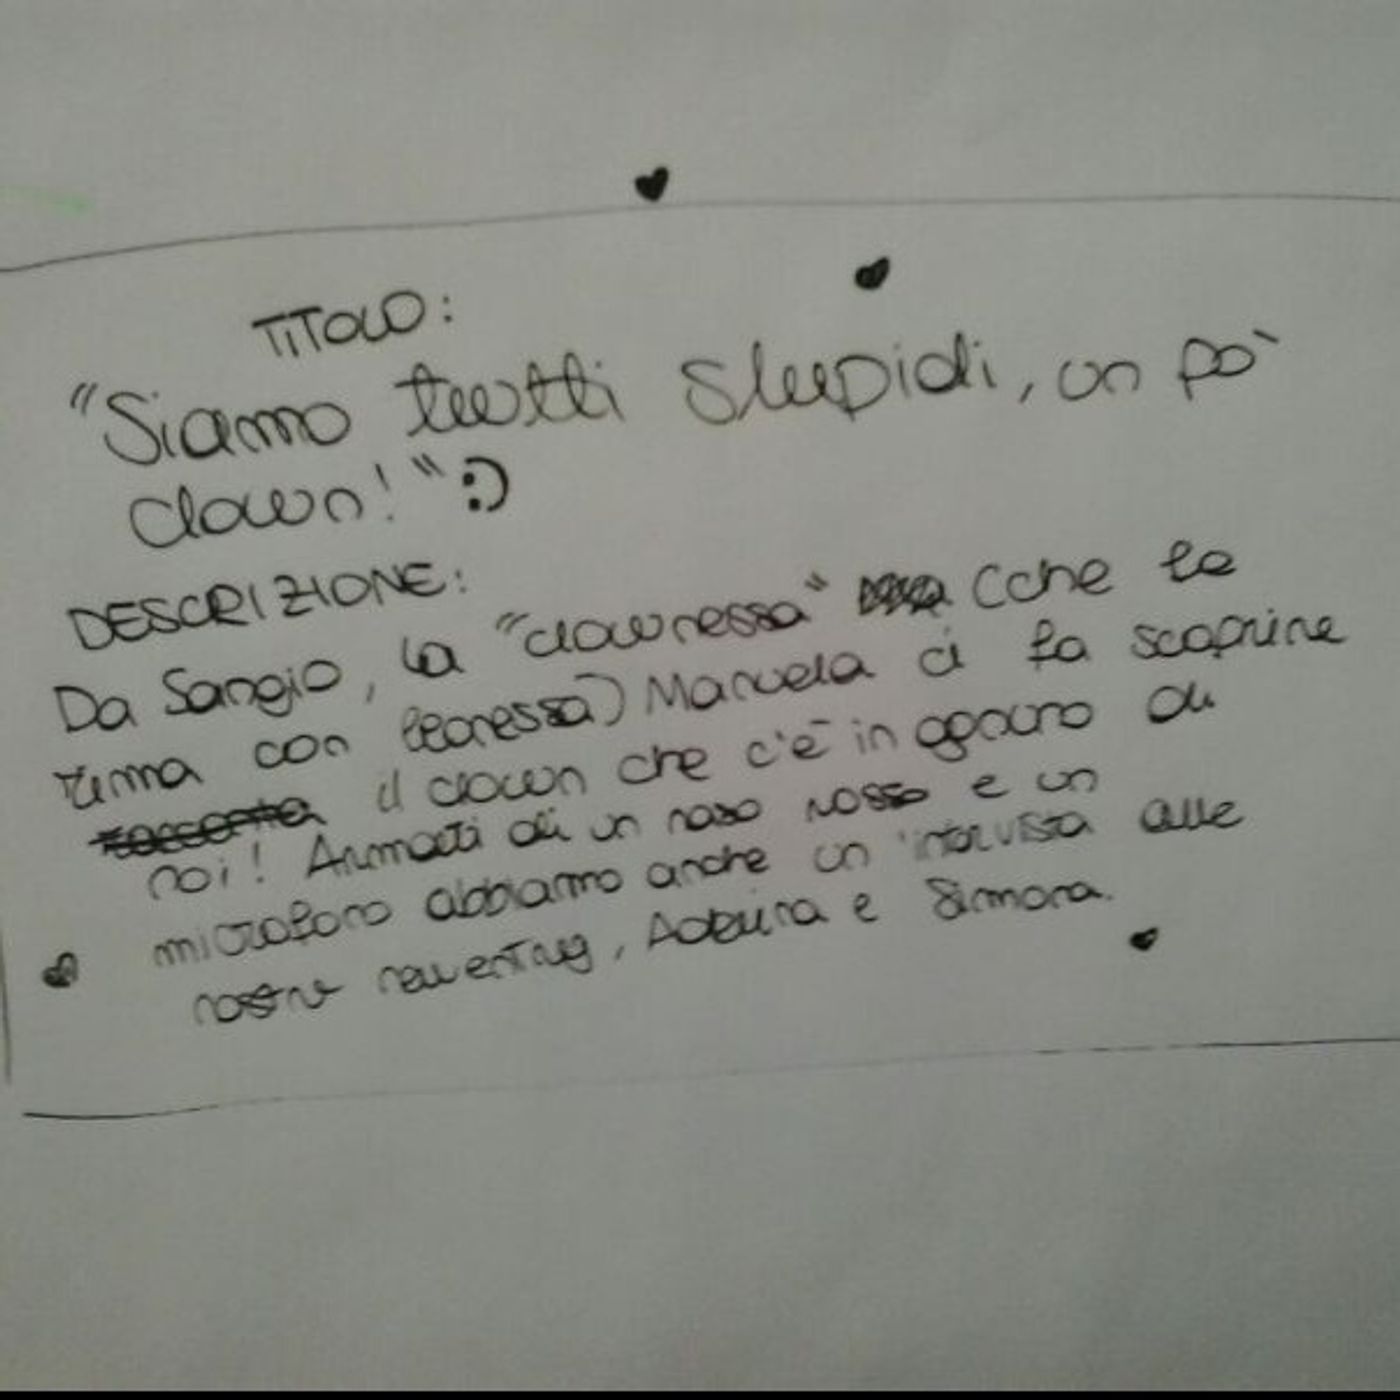 TITOLO:
"Siamo tutti stupidi, un po'
clown!" :)
DESCRIZIONE:
Da Sangio, la "clownessa" (che fa
rima con leonessa) Manuela ci fa scoprire
il clown che c'è in ognuno di
noi! Armati di un naso rosso e un
microfono abbiamo anche un intervista alle
nostre, e Simona.